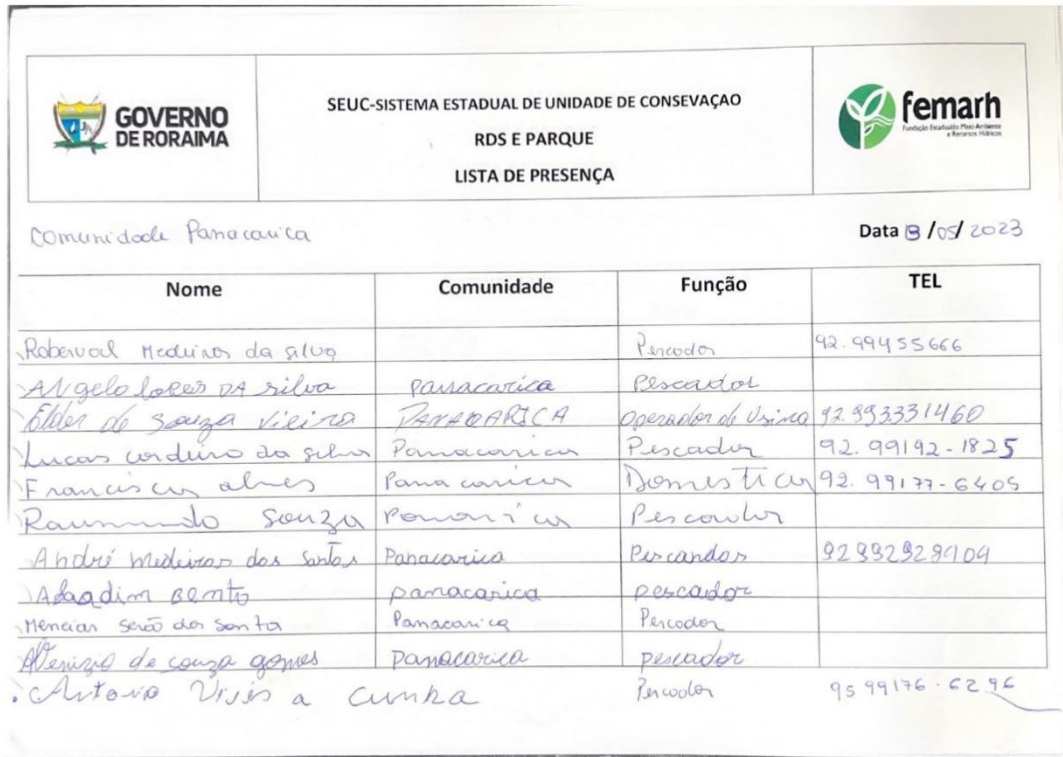 GOVERNO
DE RORAIMA
SEUC-SISTEMA ESTADUAL DE UNIDADE DE CONSEVAÇAO
RDS E PARQUE
LISTA DE PRESENÇA
femarh
Fundação Estadual do Meio Ambiente
e Recursos Hídricos
Comunidade Panacarica
Data /05/2023
Nome Comunidade Função TEL
Roberval Medeiros da silva Pescador 92.99455666
ANgelo lopes DA silva panacarica Pescador
Elder de Souza Vieira PANACARICA Operador de Usina 92.993331460
Lucas cordeiro da silva Panacarica Pescador 92.99192-1825
Francisca alves Panacarica Domestica 92.99177-6405
Raimundo Souza Pescador
André Medeiros dos Santos Panacarica Pescandor 92992929404
Bento panacarica pescador
Panacarica Pescador
de souza gomes panacarica pescador
Antonio a cunha Pescador 9599176-6296